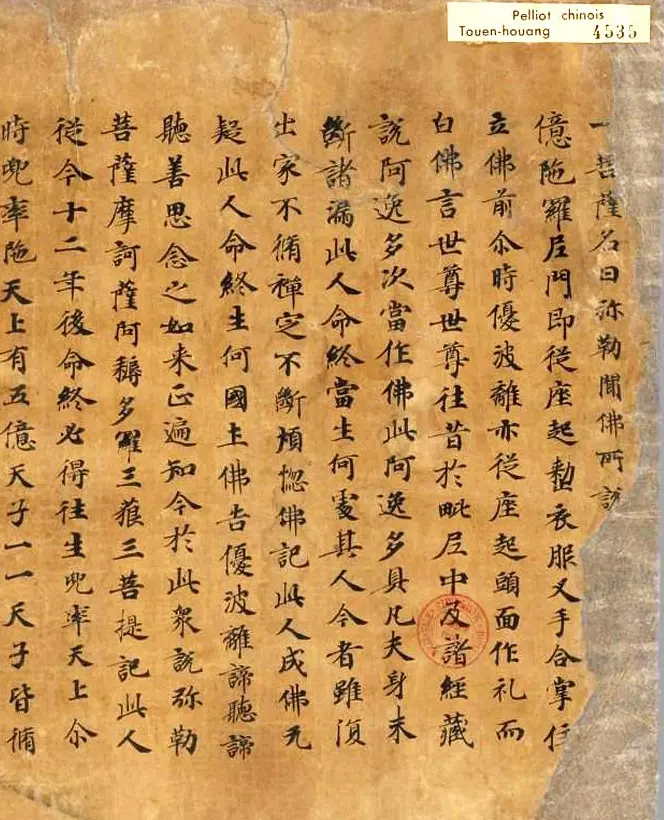 Pelliot chinois
Touen-houang 4535
一菩薩名曰弥勒聞佛所説
億陁羅尼門即從座起整衣服叉手合掌住
立佛前尒時優波離亦從座起頭面作礼而
白佛言世尊世尊往昔於毗尼中及諸經藏
説阿逸多次當作佛此阿逸多具凡夫身未
斷諸漏此人命終當生何處其人今者雖復
出家不脩禪定不斷煩惱佛記此人成佛无
疑此人命終生何國土佛告優波離諦聽諦
聽善思念之如来正遍知今於此衆説弥勒
菩薩摩訶薩阿耨多羅三藐三菩提記此人
從今十二年後命終必得往生兜率天上尒
時兜率陁天上有五億天子一一天子皆脩